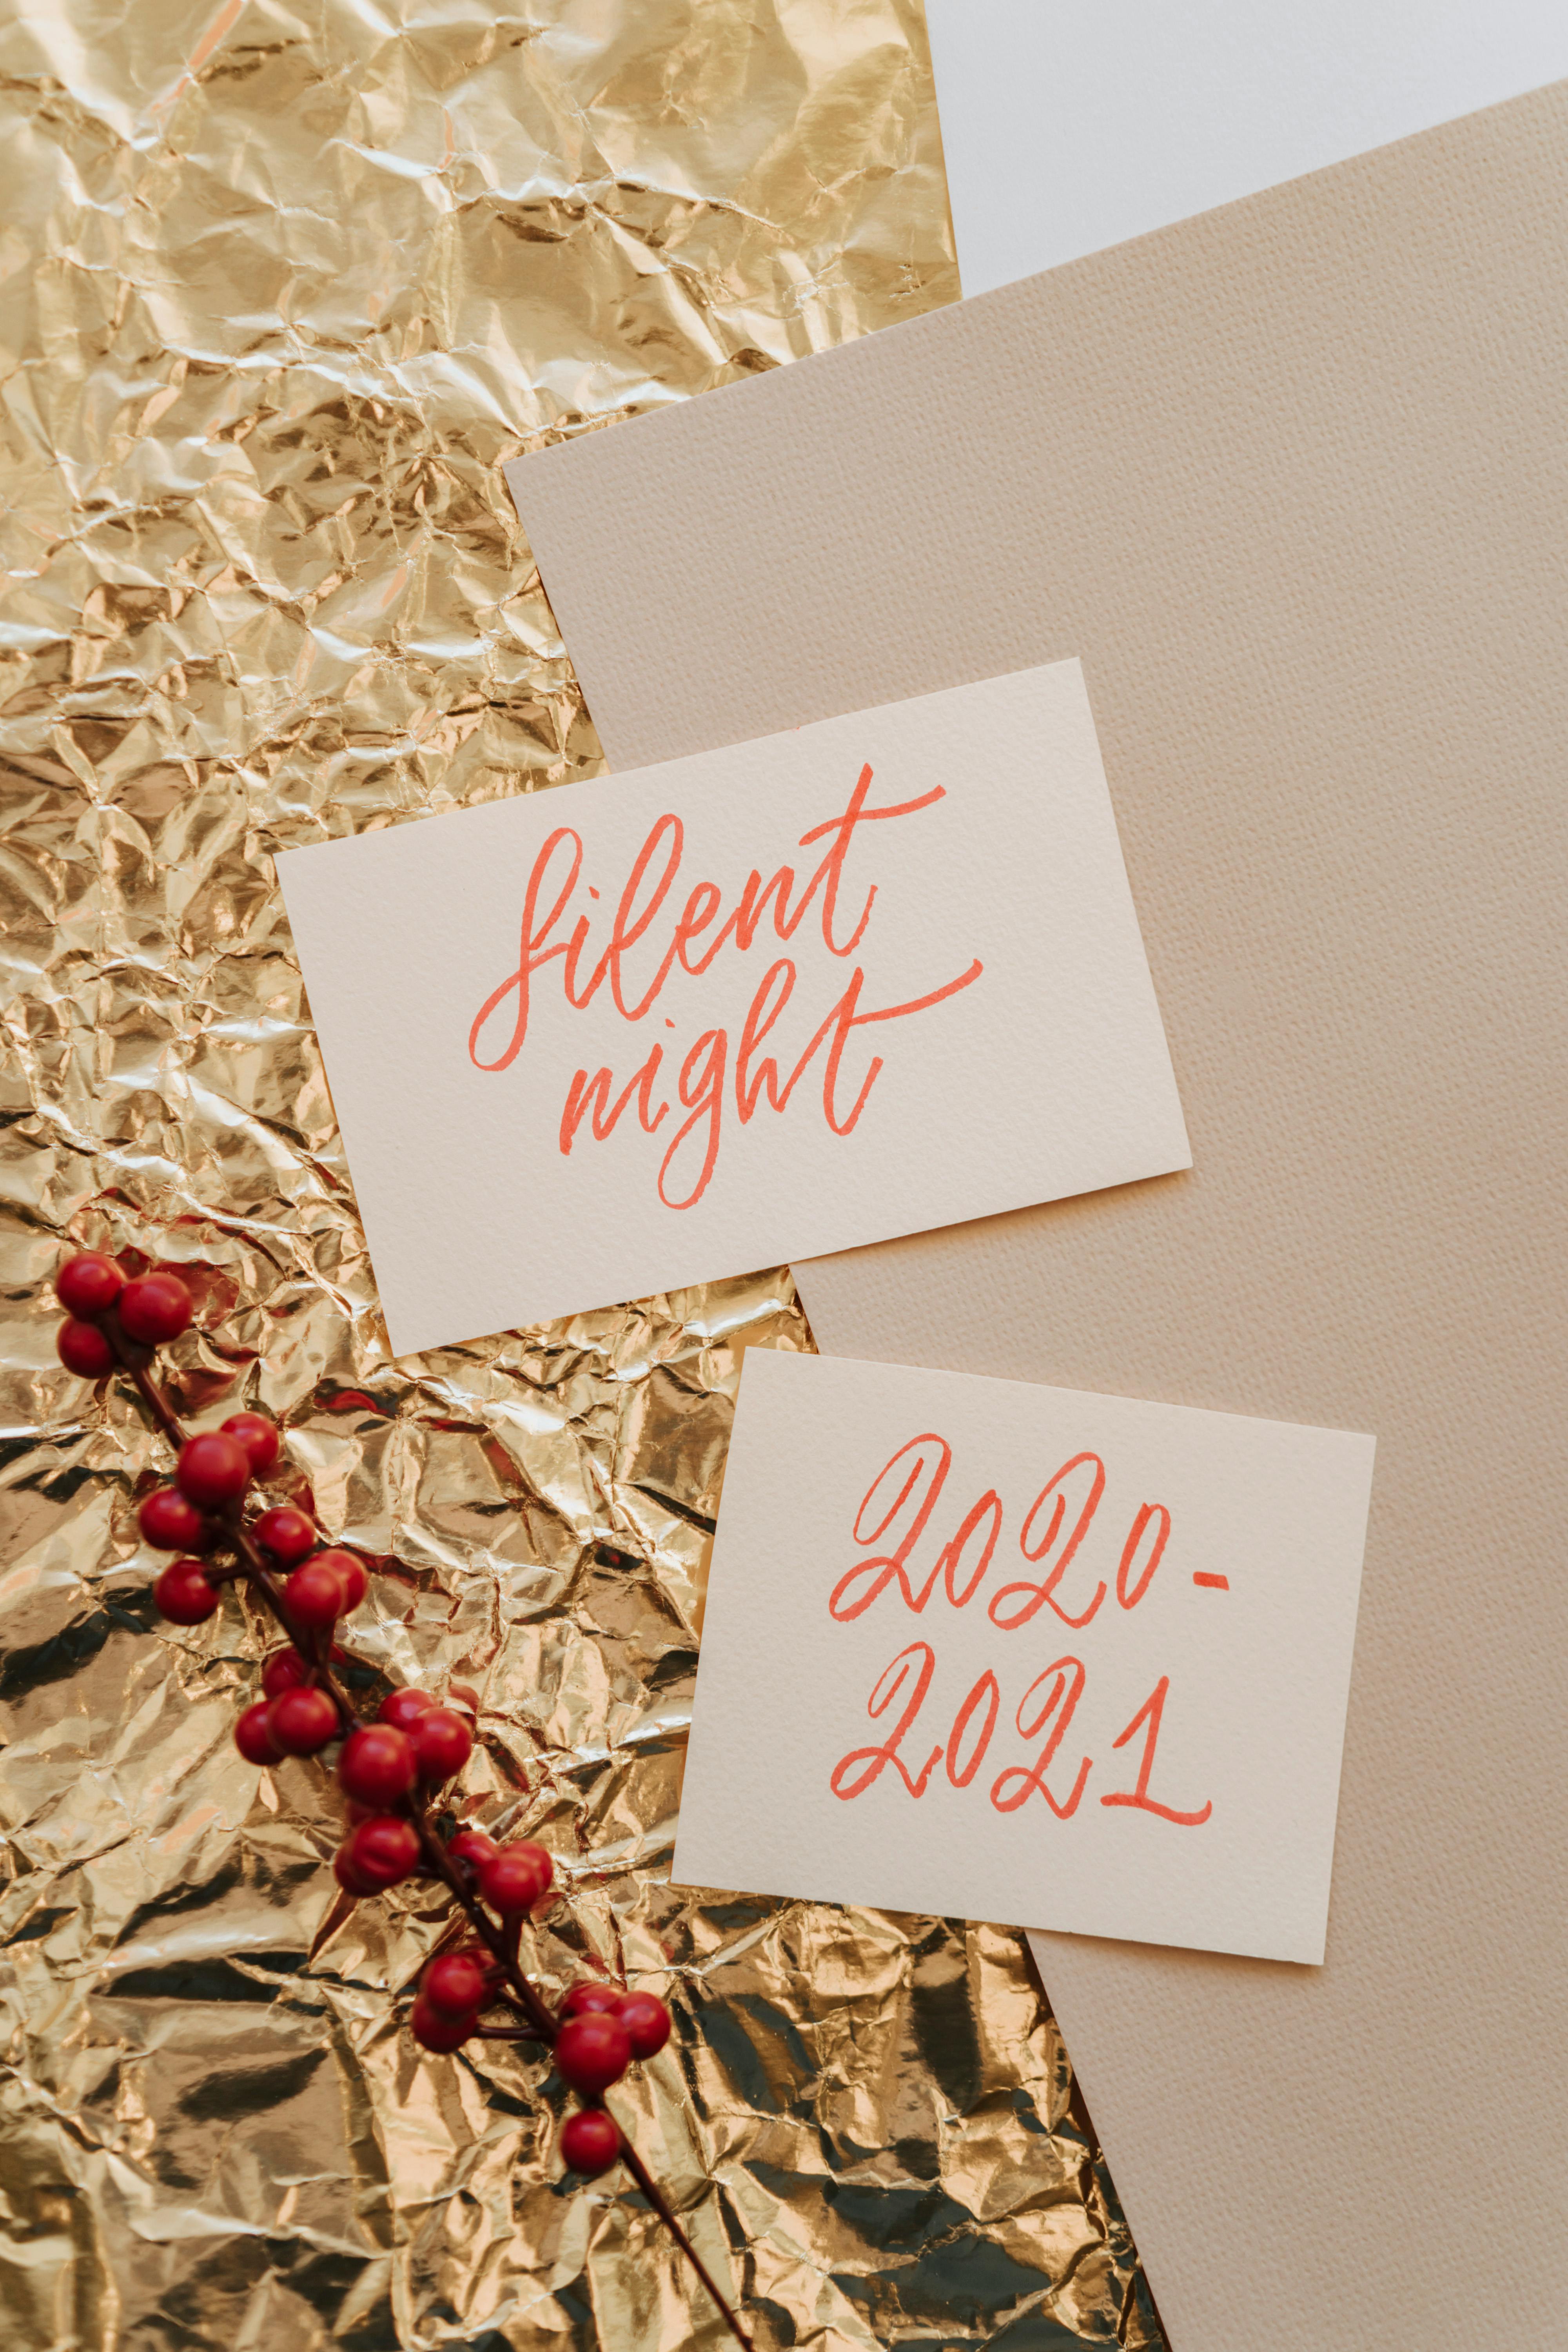 silent
night
2020-
2021